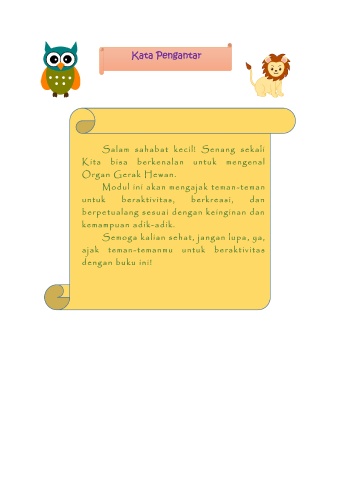 Kata Pengantar
Salam sahabat kecil! Senang sekali
Kita bisa berkenalan untuk mengenal
Organ Gerak Hewan.
Modul ini akan mengajak teman-teman
untuk beraktivitas, berkreasi, dan
berpetualang sesuai dengan keinginan dan
kemampuan adik-adik.
Semoga kalian sehat, jangan lupa, ya,
ajak teman-temanmu untuk beraktivitas
dengan buku ini!